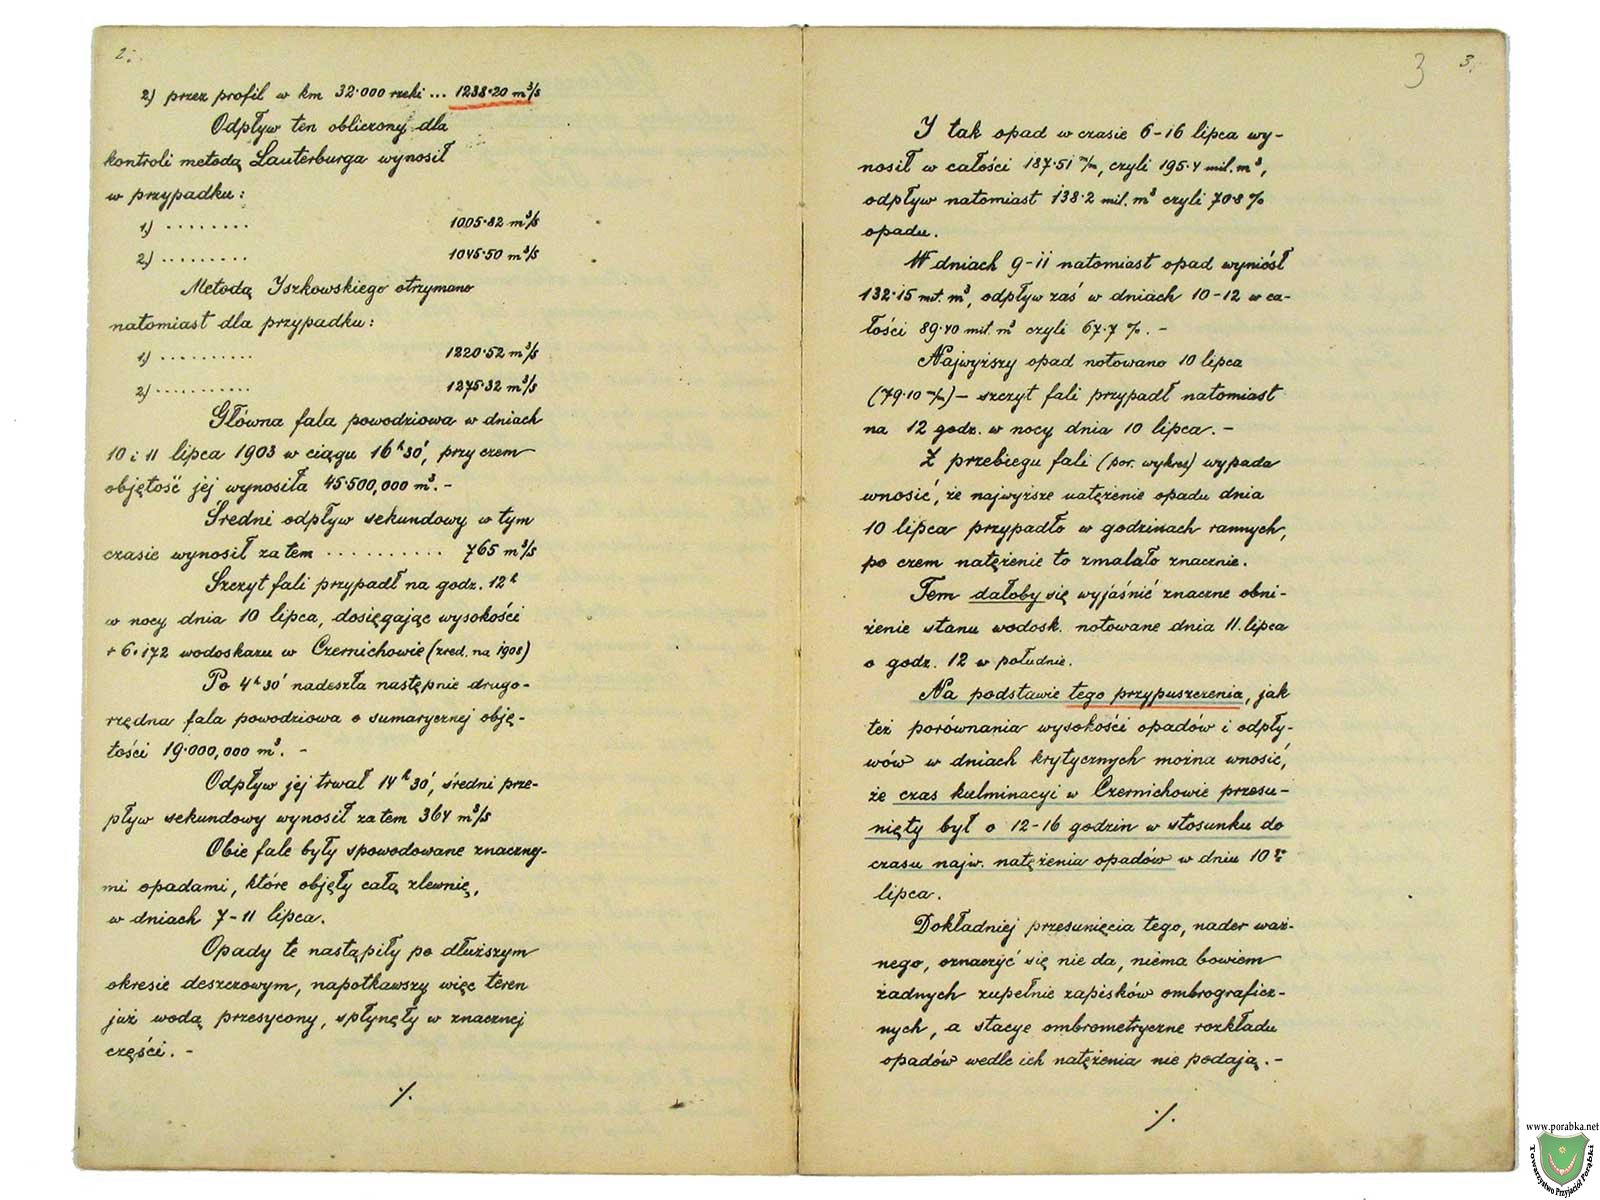 2.
2) przez profil w km 32·000 rzeki ... 1238·20 m³/s
Odpływ ten obliczony dla
kontroli metodą Lauterburga wynosił
w przypadku:
1) ........ 1005·82 m³/s
2) ......... 1045·50 m³/s
Metodą Iszkowskiego otrzymano
natomiast dla przypadku:
1) .......... 1220·52 m³/s
2) .......... 1275·32 m³/s
Główna fala powodziowa w dniach
10 i 11 lipca 1903 w ciągu 16ʰ30', przyczem
objętość jej wynosiła 45·500,000 m³. -
Średni odpływ sekundowy w tym
czasie wynosił zatem .......... 765 m³/s
Szczyt fali przypadł na godz. 12ʰ
w nocy dnia 10 lipca, dosięgając wysokości
+ 6·172 wodoskazu w Czernichowie (zred. na 1908)
Po 4ʰ30' nadeszła następnie drugo-
rzędna fala powodziowa o sumarycznej obję-
tości 19·000,000 m³. -
Odpływ jej trwał 14ʰ30', średni prze-
pływ sekundowy wynosił zatem 364 m³/s
Obie fale były spowodowane znaczny-
mi opadami, które objęły całą zlewnię,
w dniach 7-11 lipca.
Opady te nastąpiły po dłuższym
okresie deszczowym, napotkawszy więc teren
już wodą przesycony, spłynęły w znacznej
części. -
·/.
3 3.
I tak opad w czasie 6-16 lipca wy-
nosił w całości 187·51 m/m, czyli 195·4 mil. m³,
odpływ natomiast 138·2 mil. m³ czyli 70·8 %
opadu.
W dniach 9-11 natomiast opad wyniósł
132·15 mil. m³, odpływ zaś w dniach 10-12 w ca-
łości 89·40 mil. m³ czyli 67·7 %. -
Najwyższy opad notowano 10 lipca
(79·10 m/m) - szczyt fali przypadł natomiast
na 12 godz. w nocy dnia 10 lipca. -
Z przebiegu fali (por. wykres) wypada
wnosić, że najwyższe natężenie opadu dnia
10 lipca przypadło w godzinach rannych,
po czem natężenie to zmalało znacznie.
Tem dałoby się wyjaśnić znaczne obni-
żenie stanu wodosk. notowane dnia 11. lipca
o godz. 12 w południe.
Na podstawie tego przypuszczenia, jak
też porównania wysokości opadów i odpły-
wów w dniach krytycznych można wnosić,
że czas kulminacyi w Czernichowie przesu-
nięty był o 12-16 godzin w stosunku do
czasu najw. natężenia opadów w dniu 10go
lipca.
Dokładniej przesunięcia tego, nader waż-
nego, oznaczyć się nie da, niema bowiem
żadnych zupełnie zapisków ombrograficz-
nych, a stacye ombrometryczne rozkładu
opadów wedle ich natężenia nie podają. -
·/.
www.porabka.net
Towarzystwo Przyjaciół Porąbki